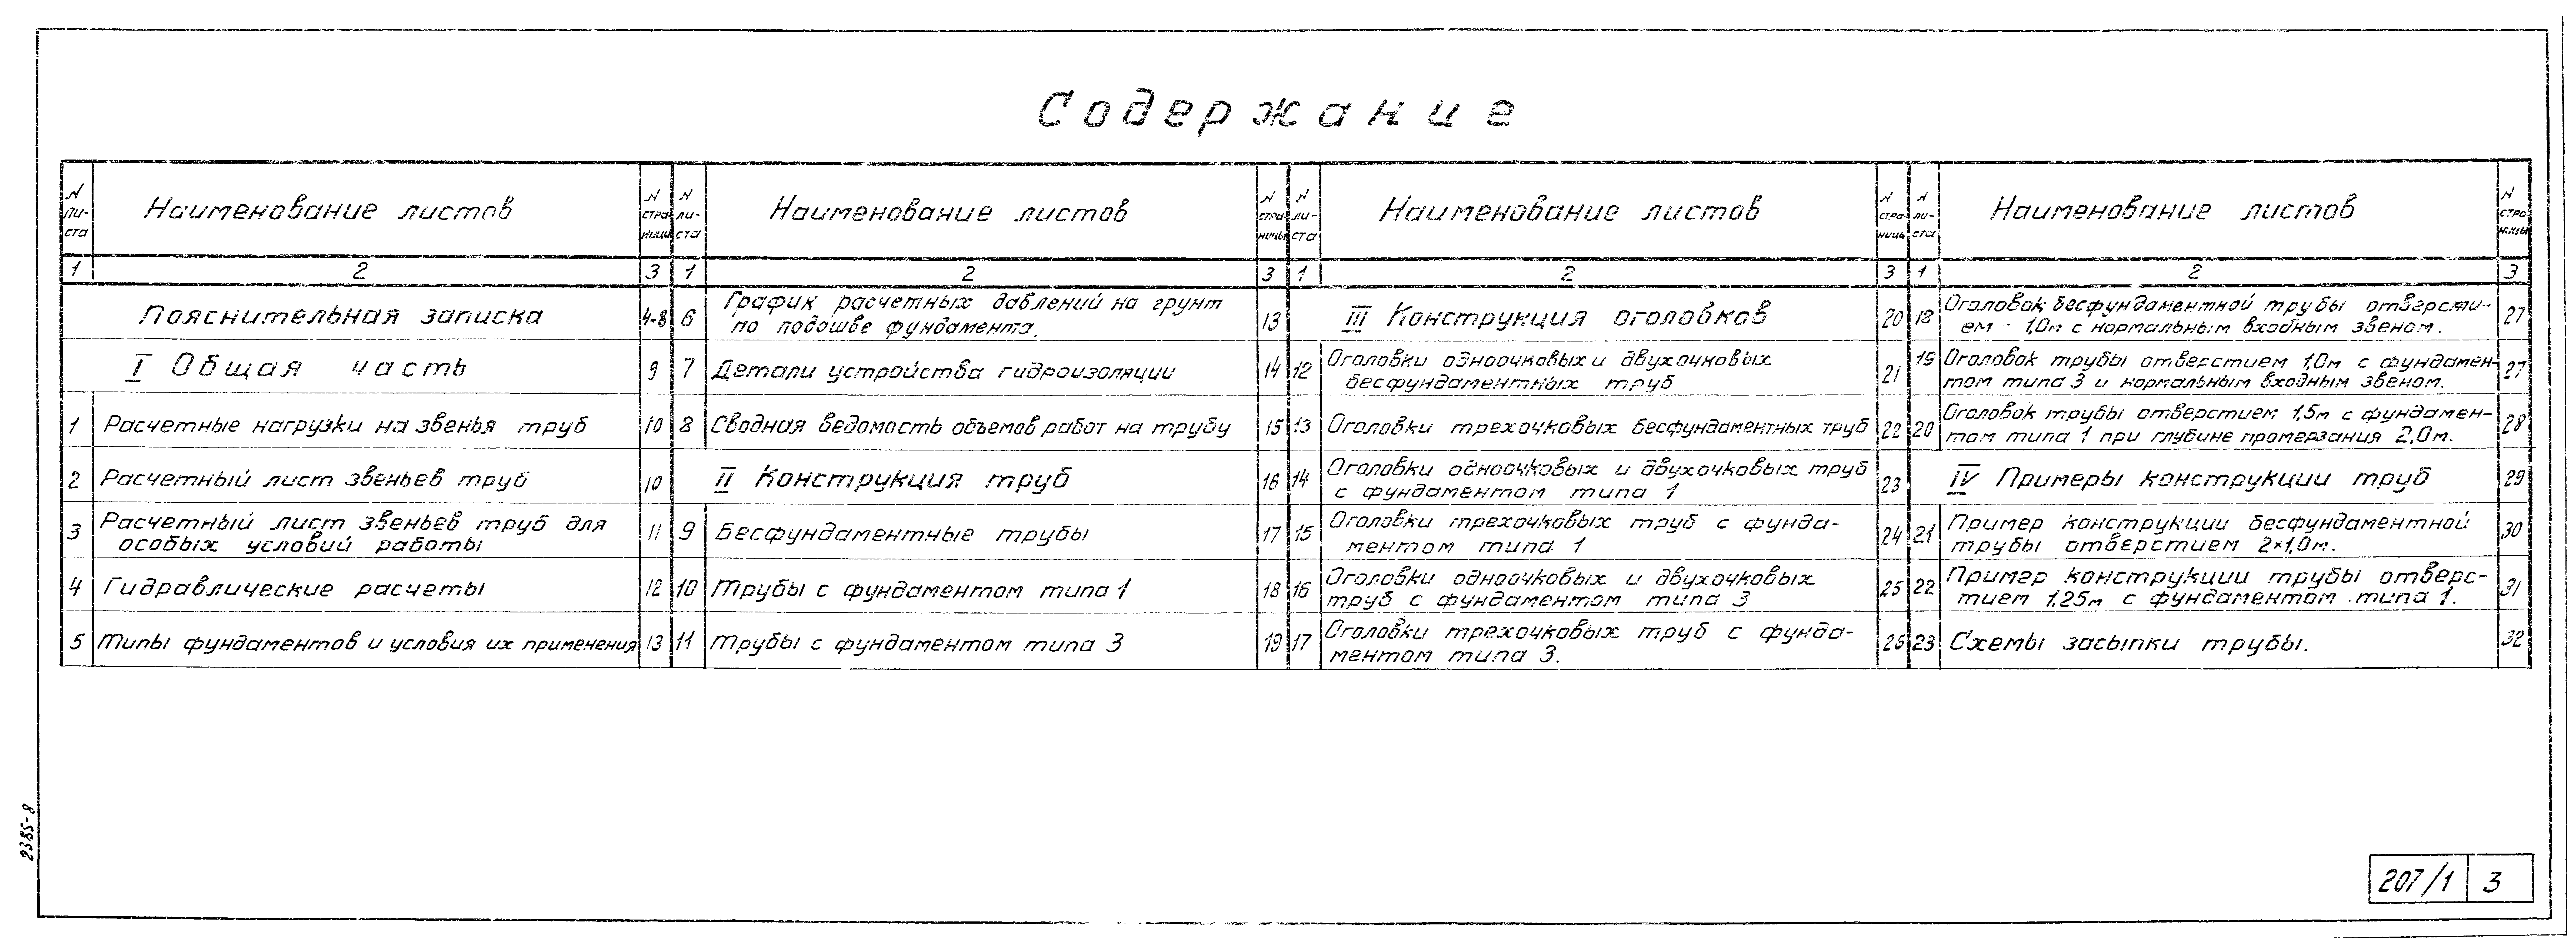 Содержание
N ли- ста
Наименование листов
N стра ницы
N ли- ста
Наименование листов
N стра- ницы
N ли- ста
Наименование листов
N стра- ницы
N ли- ста
Наименование листов
N стра ницы
1 2 3 1 2 3 1 2 3 1 2 3
Пояснительная записка 4-8
I Общая часть 9
1 Расчетные нагрузки на звенья труб 10
2 Расчетный лист звеньев труб 10
3 Расчетный лист звеньев труб для
особых условий работы 11
4 Гидравлические расчеты 12
5 Типы фундаментов и условия их применения 13
6 График расчетных давлений на грунт
по подошве фундамента. 13
7 Детали устройства гидроизоляции 14
8 Сводная ведомость объемов работ на трубу 15
II Конструкция труб 16
9 Бесфундаментные трубы 17
10 Трубы с фундаментом типа 1 18
11 Трубы с фундаментом типа 3 19
III Конструкция оголовков 20
12 Оголовки одноочковых и двухочковых
бесфундаментных труб 21
13 Оголовки трехочковых бесфундаментных труб 22
14 Оголовки одноочковых и двухочковых труб
с фундаментом типа 1 23
15 Оголовки трехочковых труб с фунда-
ментом типа 1 24
16 Оголовки одноочковых и двухочковых
труб с фундаментом типа 3 25
17 Оголовки трехочковых труб с фунда-
ментом типа 3. 26
18 Оголовок бесфундаментной трубы отверсти-
ем - 1,0м с нормальным входным звеном. 27
19 Оголовок трубы отверстием 1,0м с фундамен-
том типа 3 и нормальным входным звеном. 27
20 Оголовок трубы отверстием 1,5м с фундамен-
том типа 1 при глубине промерзания 2,0м. 28
IV Примеры конструкции труб 29
21 Пример конструкции бесфундаментной
трубы отверстием 2×1,0м. 30
22 Пример конструкции трубы отверс-
тием 1,25м с фундаментом типа 1. 31
23 Схемы засыпки трубы. 32
2385-8
207/1 3